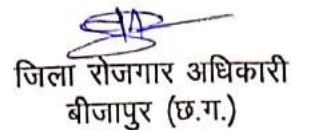 जिला रोजगार अधिकारी
बीजापुर (छ.ग.)